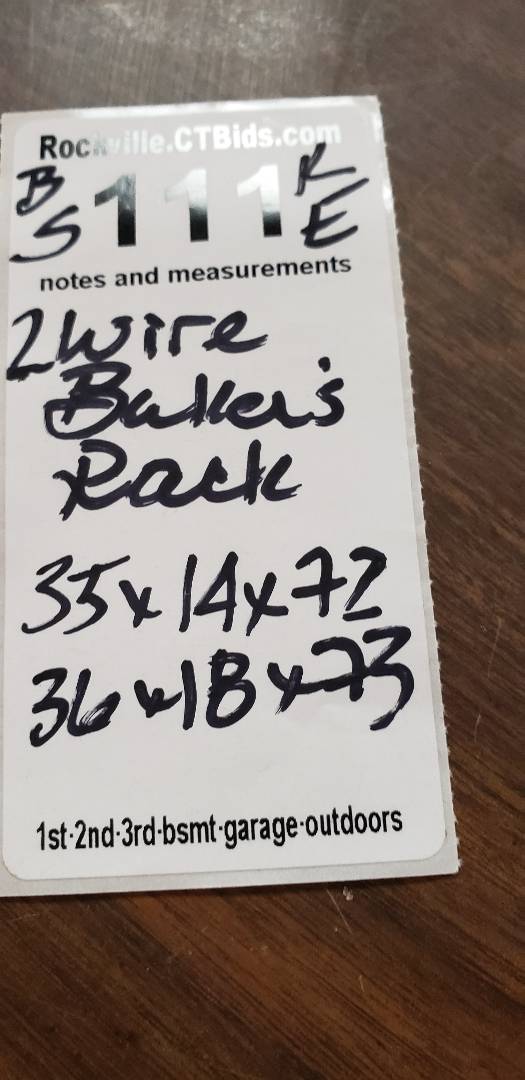 Rockville.CTBids.com
B 111 K
S E
notes and measurements
2 wire
Baker's
Rack
35x14x72
36x18x73
1st·2nd·3rd·bsmt·garage·outdoors